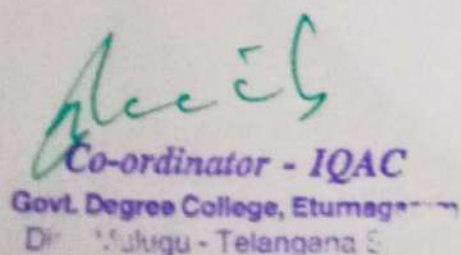 Co-ordinator - IQAC
Govt. Degree College,
Mulugu - Telangana